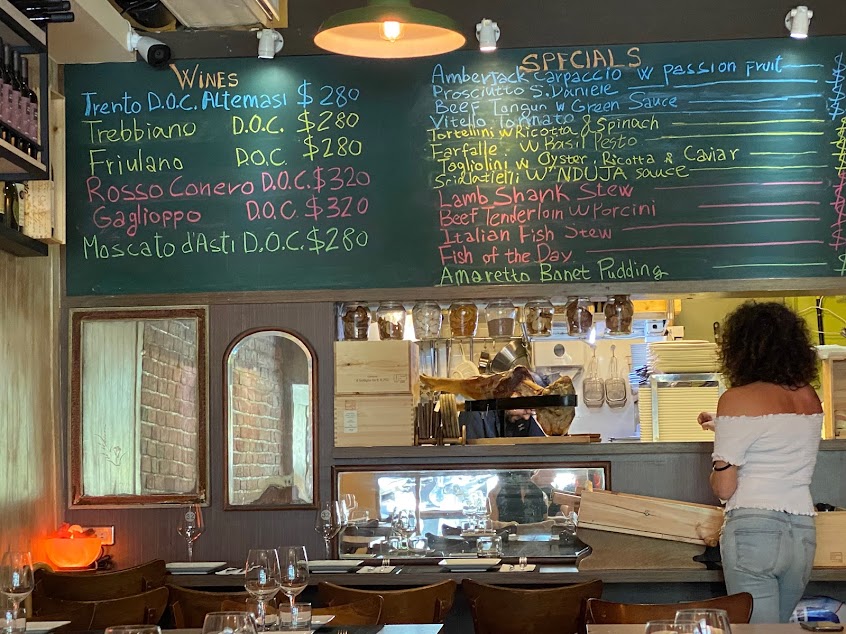 WINES
Trento D.O.C. Altemasi $280
Trebbiano D.O.C. $280
Friulano D.O.C. $280
Rosso Conero D.O.C. $320
Gaglioppo D.O.C. $320
Moscato d'Asti D.O.C. $280
SPECIALS
Amberjack Carpaccio w passion fruit
Prosciutto S. Daniele
Beef Tongun w Green Sauce
Vitello Tonnato
Tortellini w Ricotta & Spinach
Farfalle w Basil Pesto
Tagliolini w Oyster, Ricotta & Caviar
Scialatielli w 'NDUJA sauce
Lamb Shank Stew
Beef Tenderloin w Porcini
Italian Fish Stew
Fish of the Day
Amaretto Bonet Pudding